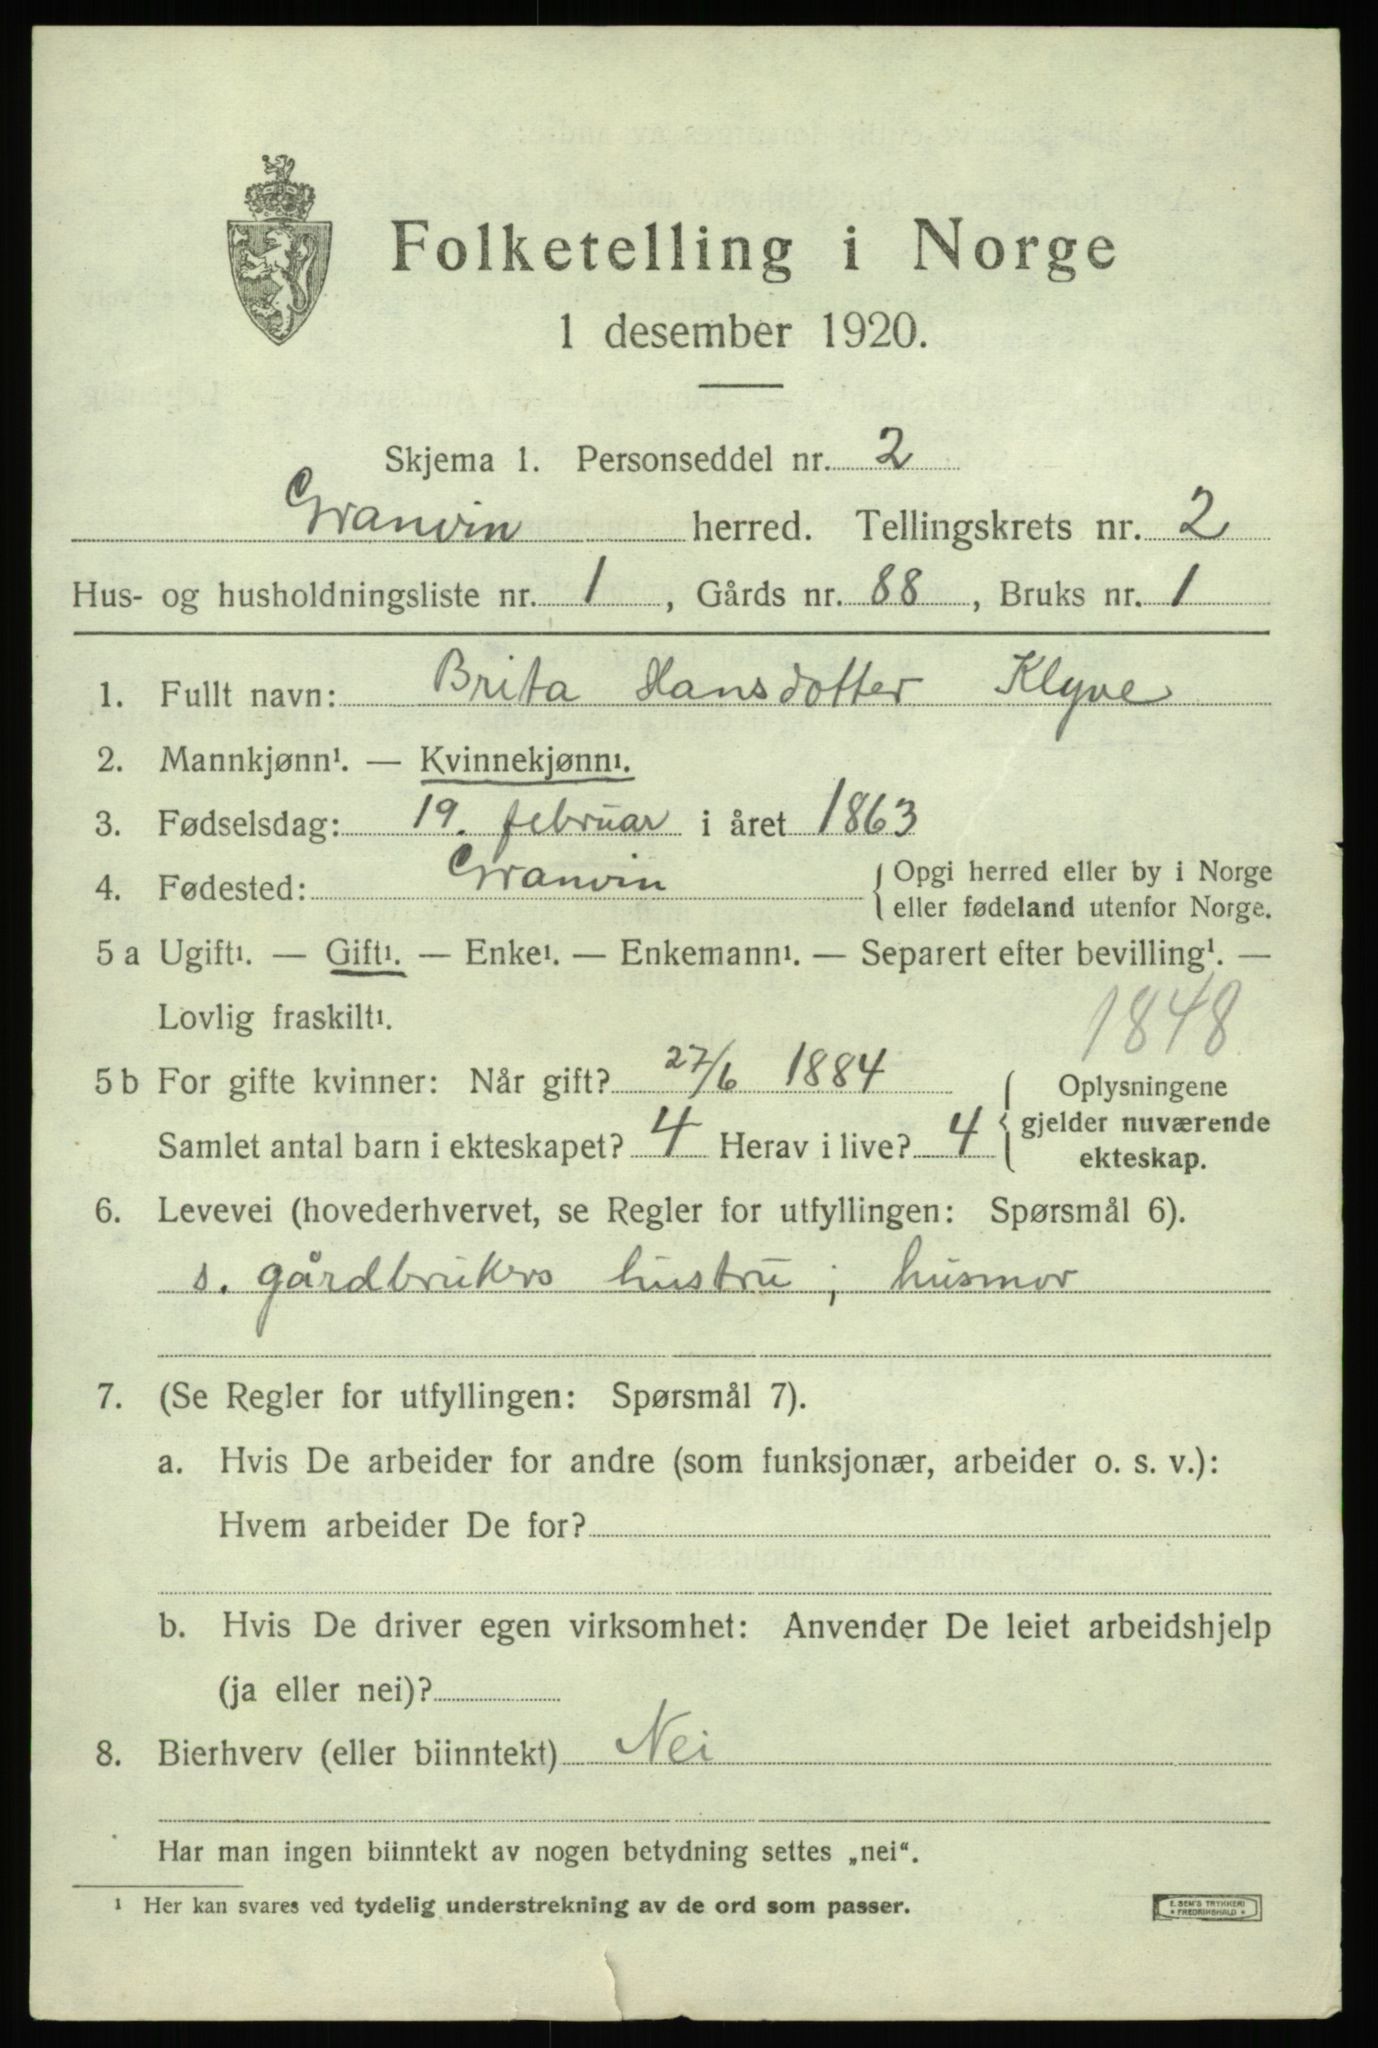 Folketelling i Norge
1 desember 1920.
Skjema 1. Personseddel nr. 2
Granvin herred. Tellingskrets nr. 2
Hus- og husholdningsliste nr. 1, Gårds nr. 88, Bruks nr. 1
1. Fullt navn: Brita Hansdotter Klyve
2. Mannkjønn¹. — Kvinnekjønn¹.
3. Fødselsdag: 19. februar i året 1863
4. Fødested: Granvin { Opgi herred eller by i Norge
eller fødeland utenfor Norge.
5 a Ugift¹. — Gift¹. — Enke¹. — Enkemann¹. — Separert efter bevilling¹. —
Lovlig fraskilt¹.
1848
5 b For gifte kvinner: Når gift? 27/6 1884
Samlet antal barn i ekteskapet? 4 Herav i live? 4
{ Oplysningene
gjelder nuværende
ekteskap.
6. Levevei (hovederhvervet, se Regler for utfyllingen: Spørsmål 6).
s. gårdbrukers hustru; husmor
7. (Se Regler for utfyllingen: Spørsmål 7).
a. Hvis De arbeider for andre (som funksjonær, arbeider o. s. v.):
Hvem arbeider De for?
b. Hvis De driver egen virksomhet: Anvender De leiet arbeidshjelp
(ja eller nei)?
8. Bierhverv (eller biinntekt) Nei
Har man ingen biinntekt av nogen betydning settes „nei“.
¹ Her kan svares ved tydelig understrekning av de ord som passer.
E. SEM'S TRYKKERI
* FREDRIKSHALD *